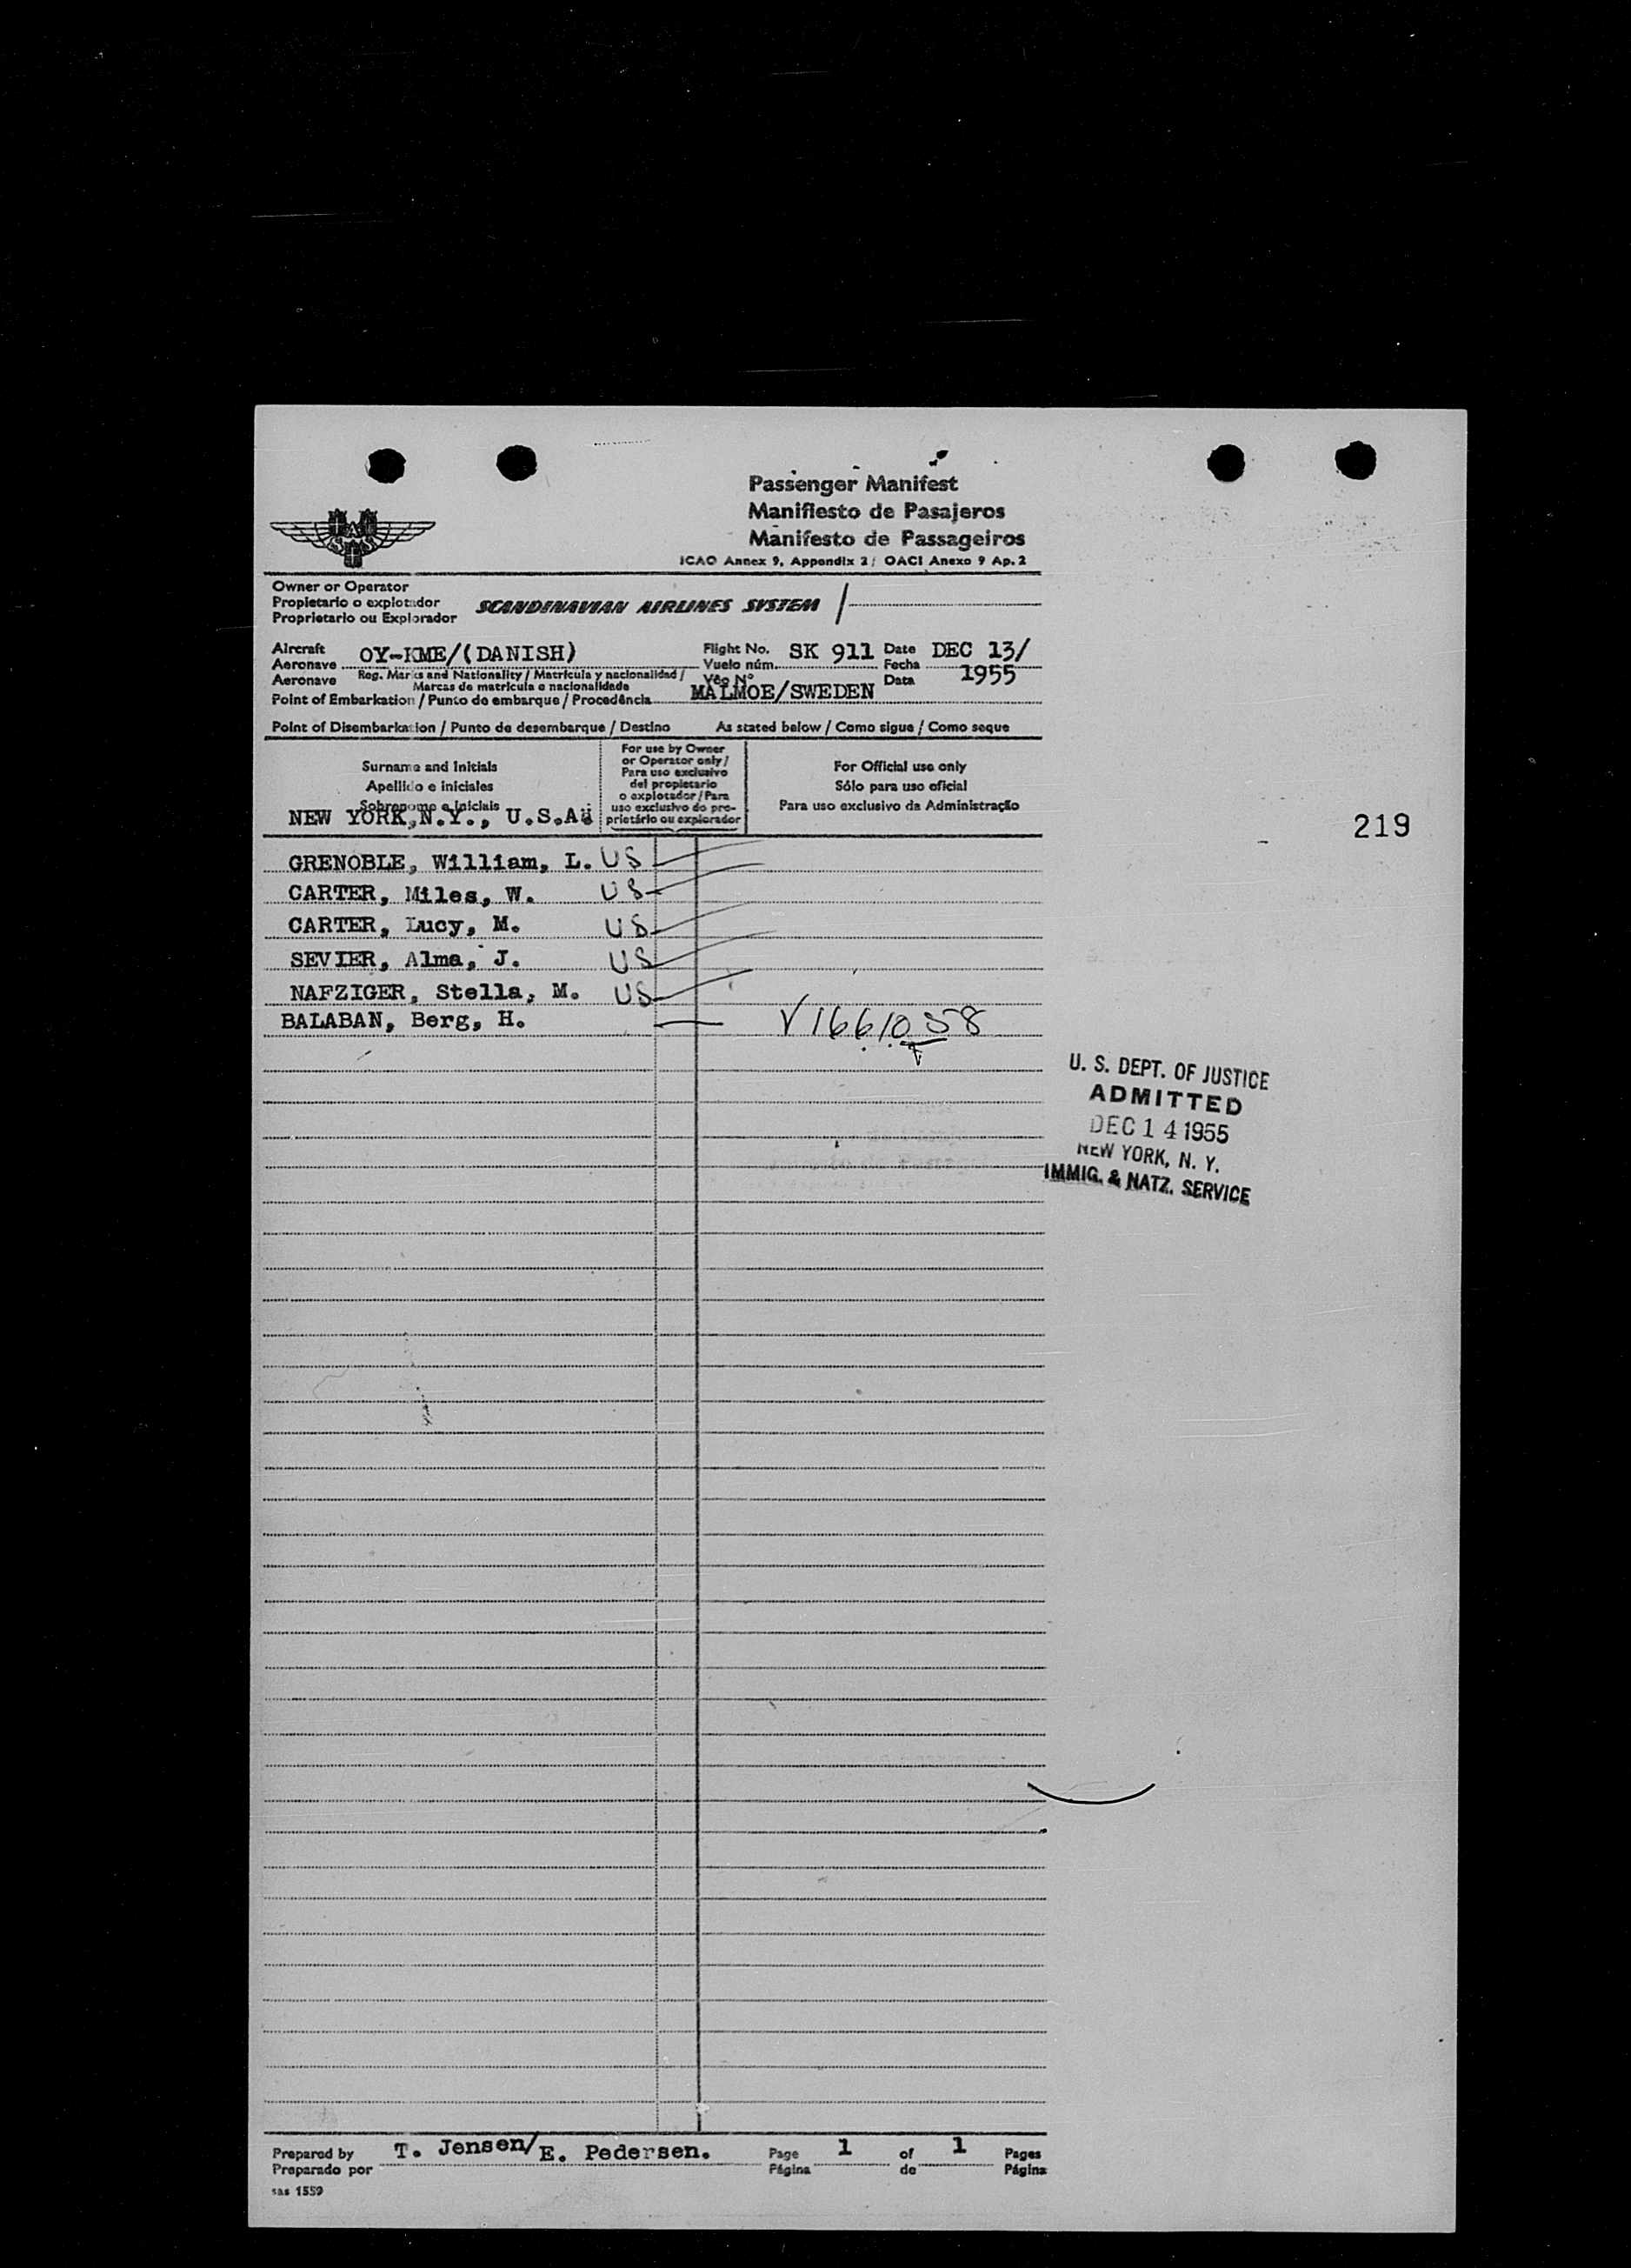 Passenger Manifest
Manifiesto de Pasajeros
Manifesto de Passageiros
ICAO Annex 9, Appendix 2 / OACI Anexo 9 Ap. 2
Owner or Operator
Propietario o explotador
Proprietario ou Explorador
SCANDINAVIAN AIRLINES SYSTEM /
Aircraft
Aeronave
Aeronave
OY-KME/(DANISH)
Reg. Marks and Nationality / Matrícula y nacionalidad /
Marcas de matrícula e nacionalidade
Flight No.
Vuelo núm.
Vôo Nº
SK 911
Date
Fecha
Data
DEC 13/
1955
Point of Embarkation / Punto de embarque / Procedência
MALMOE/SWEDEN
Point of Disembarkation / Punto de desembarque / Destino As stated below / Como sigue / Como seque
Surname and Initials
Apellido e iniciales
Sobrenome e Iniciais
NEW YORK, N.Y., U.S.A
For use by Owner
or Operator only /
Para uso exclusivo
del propietario
o explotador / Para
uso exclusivo do pro-
prietário ou explorador
For Official use only
Sólo para uso oficial
Para uso exclusivo da Administração
219
GRENOBLE, William, L. US
CARTER, Miles, W. US
CARTER, Lucy, M. US
SEVIER, Alma, J. US
NAFZIGER, Stella, M. US
BALABAN, Berg, H. V1661058
U. S. DEPT. OF JUSTICE
ADMITTED
DEC 14 1955
NEW YORK, N. Y.
IMMIG. & NATZ. SERVICE
Prepared by
Preparado por
T. Jensen/E. Pedersen.
Page 1 of 1 Pages
Página de Página
sas 1559